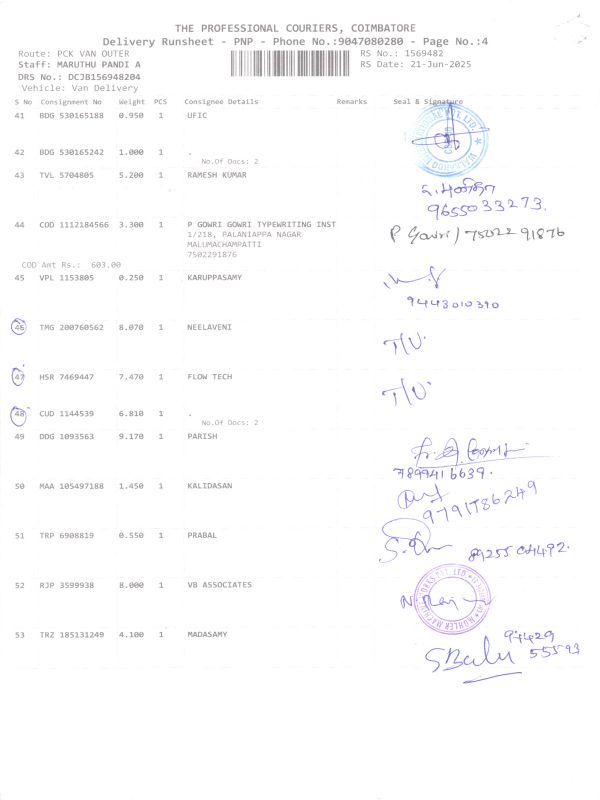 THE PROFESSIONAL COURIERS, COIMBATORE
Delivery Runsheet - PNP - Phone No.:9047080280 - Page No.:4
Route: PCK VAN OUTER RS No.: 1569482
Staff: MARUTHU PANDI A RS Date: 21-Jun-2025
DRS No.: DCJB156948204
Vehicle: Van Delivery
S No Consignment No Weight PCS Consignee Details Remarks Seal & Signature
41 BDG 530165188 0.950 1 UFIC
42 BDG 530165242 1.000 1 .
No.Of Docs: 2
43 TVL 5704805 5.200 1 RAMESH KUMAR
9655033273.
44 COD 1112184566 3.300 1 P GOWRI GOWRI TYPEWRITING INST
1/218, PALANIAPPA NAGAR
MALUMACHAMPATTI
7502291876
P Gowri / 7502291876
COD Amt Rs.: 603.00
45 VPL 1153805 0.250 1 KARUPPASAMY
9443010390
46 TMG 200760562 8.070 1 NEELAVENI
T/U.
47 HSR 7469447 7.470 1 FLOW TECH
T/U.
48 CUD 1144539 6.810 1 .
No.Of Docs: 2
49 DDG 1093563 9.170 1 PARISH
7899416639.
50 MAA 105497188 1.450 1 KALIDASAN
9791786249
51 TRP 6908819 0.550 1 PRABAL
89255 04492.
52 RJP 3599938 8.000 1 VB ASSOCIATES
53 TRZ 185131249 4.100 1 MADASAMY
94429
55593
S Balu